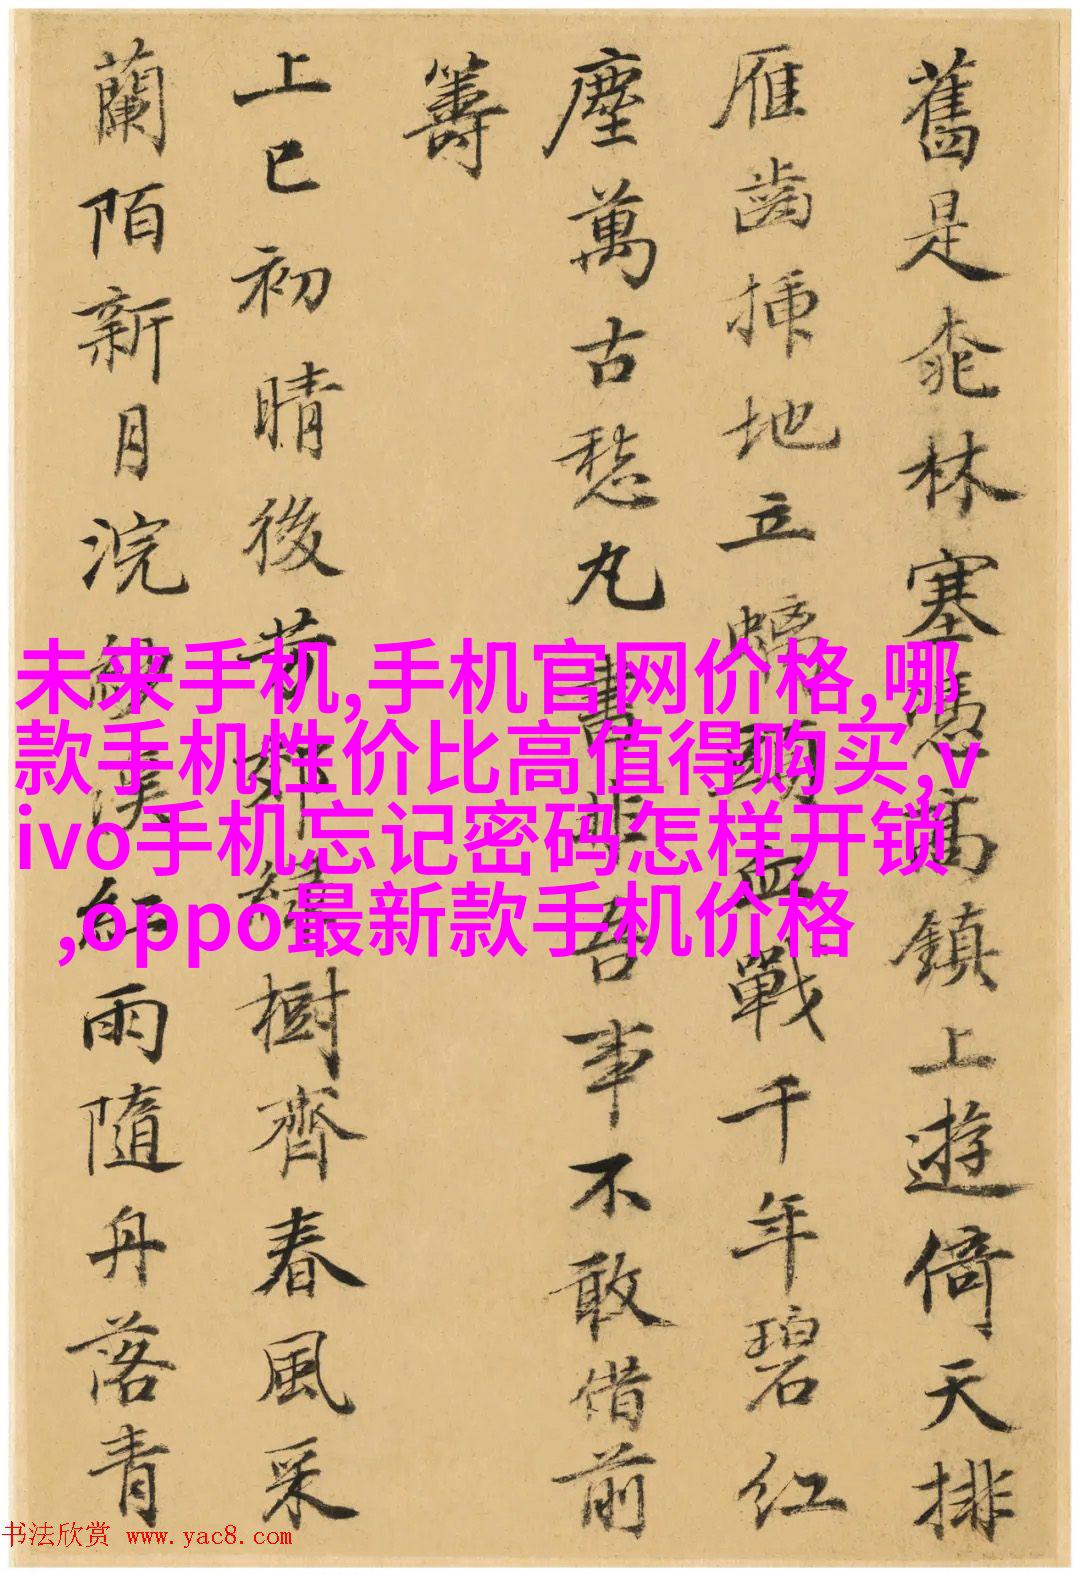 舊是桃林塞憑高鎮上遊倚天排
雁齒插地立螭頭血戰千年碧紅
塵萬古愁丸書非吾事不敢借前
籌
上巳初晴後芳郊樹齊春風采
蘭陌新月浣紗溪紅雨隨舟落青
未来手机,手机官网价格,哪
款手机性价比高值得购买,v
ivo手机忘记密码怎样开锁
,oppo最新款手机价格
书法欣赏 www.yac8.com